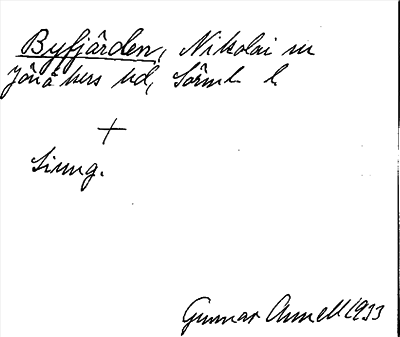 Byfjärden, Nikolai sn
Jönåkers hd, Sörml. l.
+
Ljung.
Gunnar Annell 1933